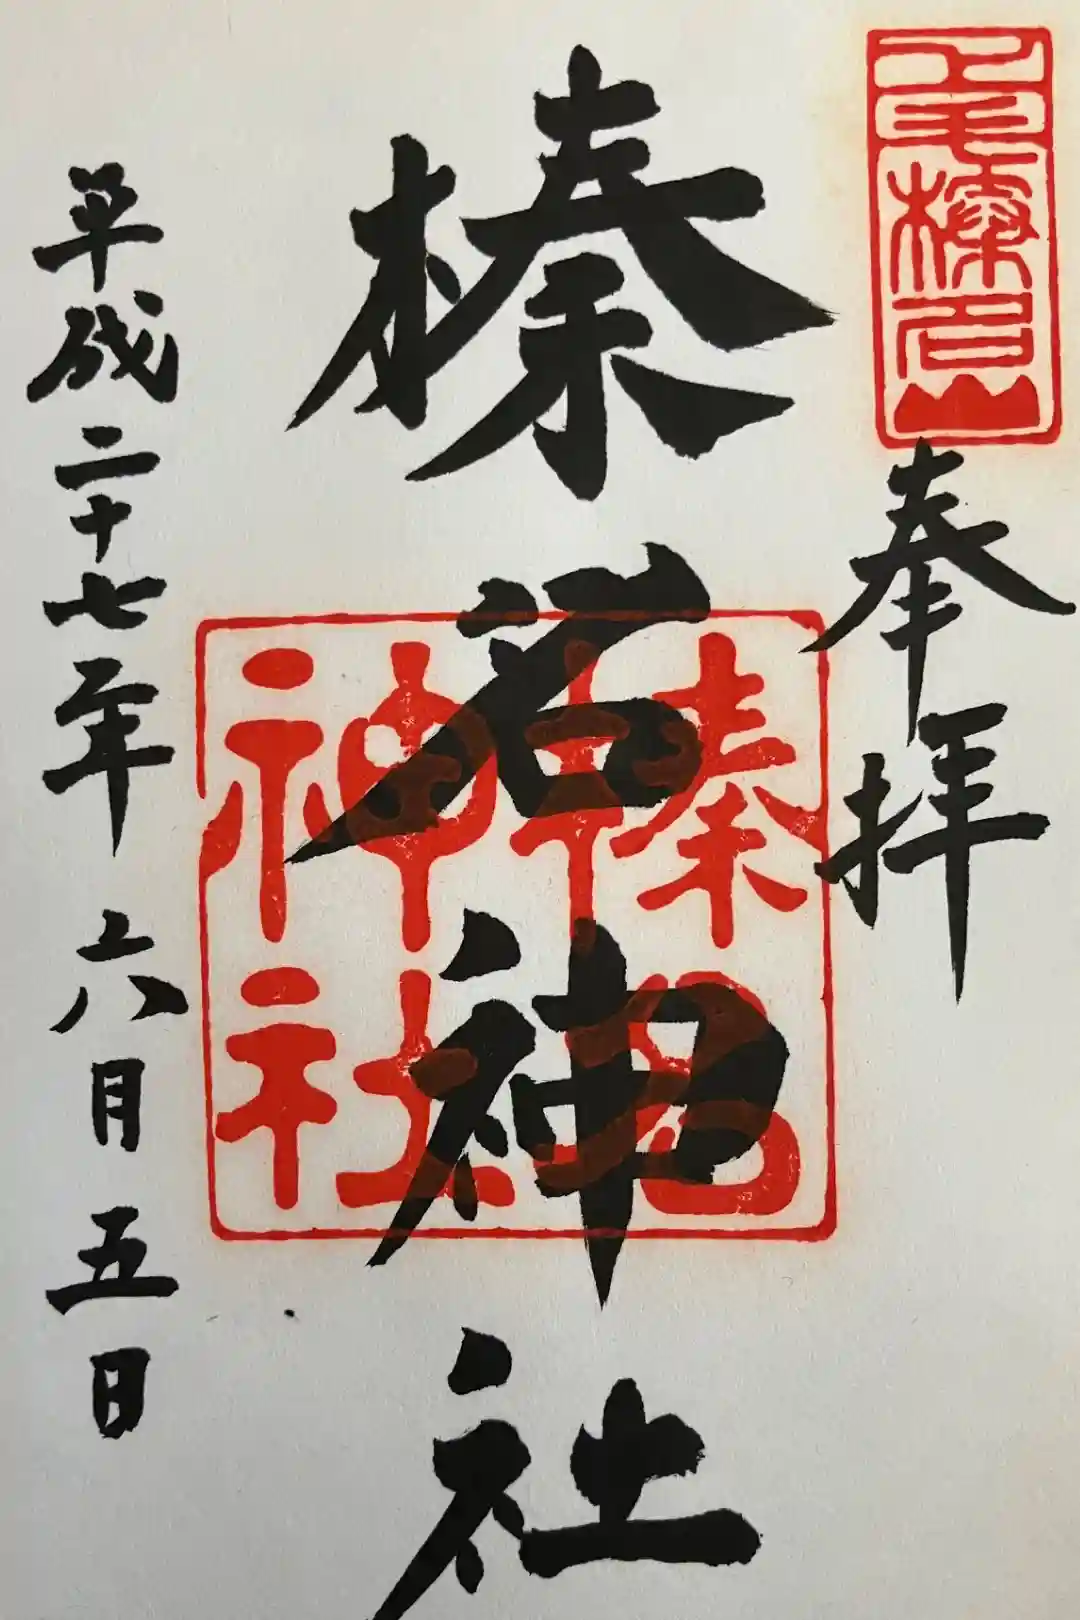 上毛榛名山
奉拝
榛名神社
榛名
神社
平成二十七年六月五日